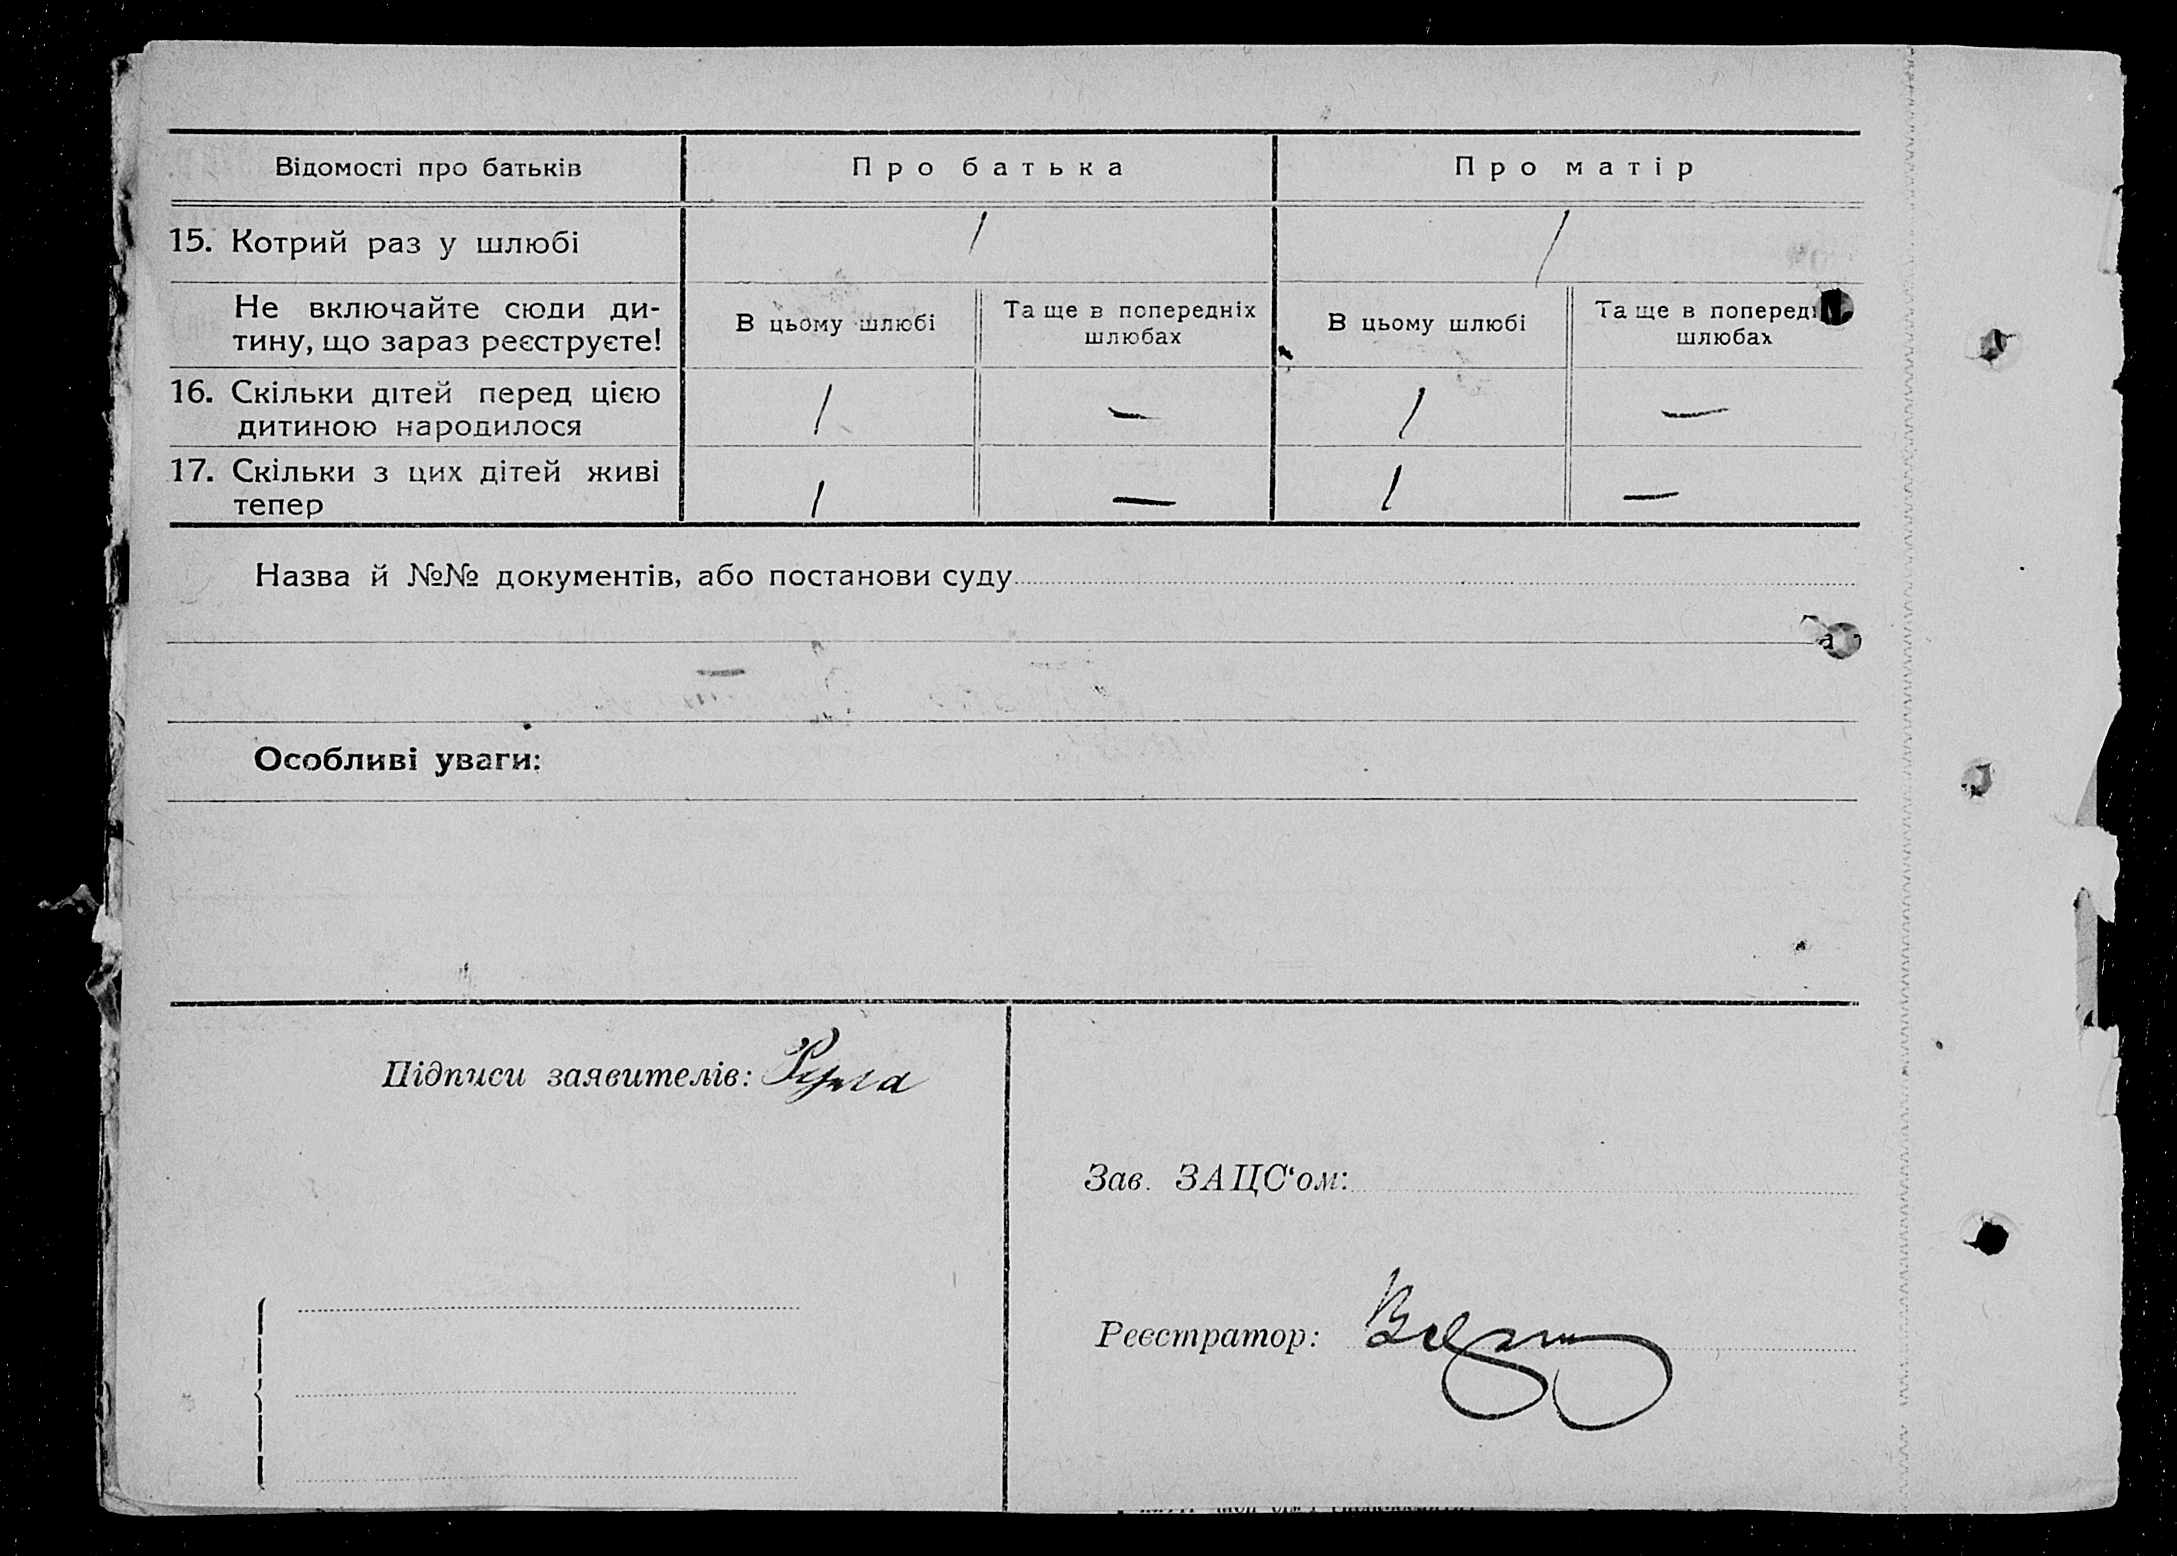 Відомості про батьків Про батька Про матір
15. Котрий раз у шлюбі 1 1
Не включайте сюди ди-
тину, що зараз реєструєте!
В цьому шлюбі
Та ще в попередніх
шлюбах
В цьому шлюбі
Та ще в поперед
шлюбах
16. Скільки дітей перед цією
дитиною народилося
1 — 1 —
17. Скільки з цих дітей живі
тепер
1 — 1 —
Назва й №№ документів, або постанови суду
Особливі уваги:
Підписи заявителів:
Зав. ЗАЦС'ом:
Реєстратор: